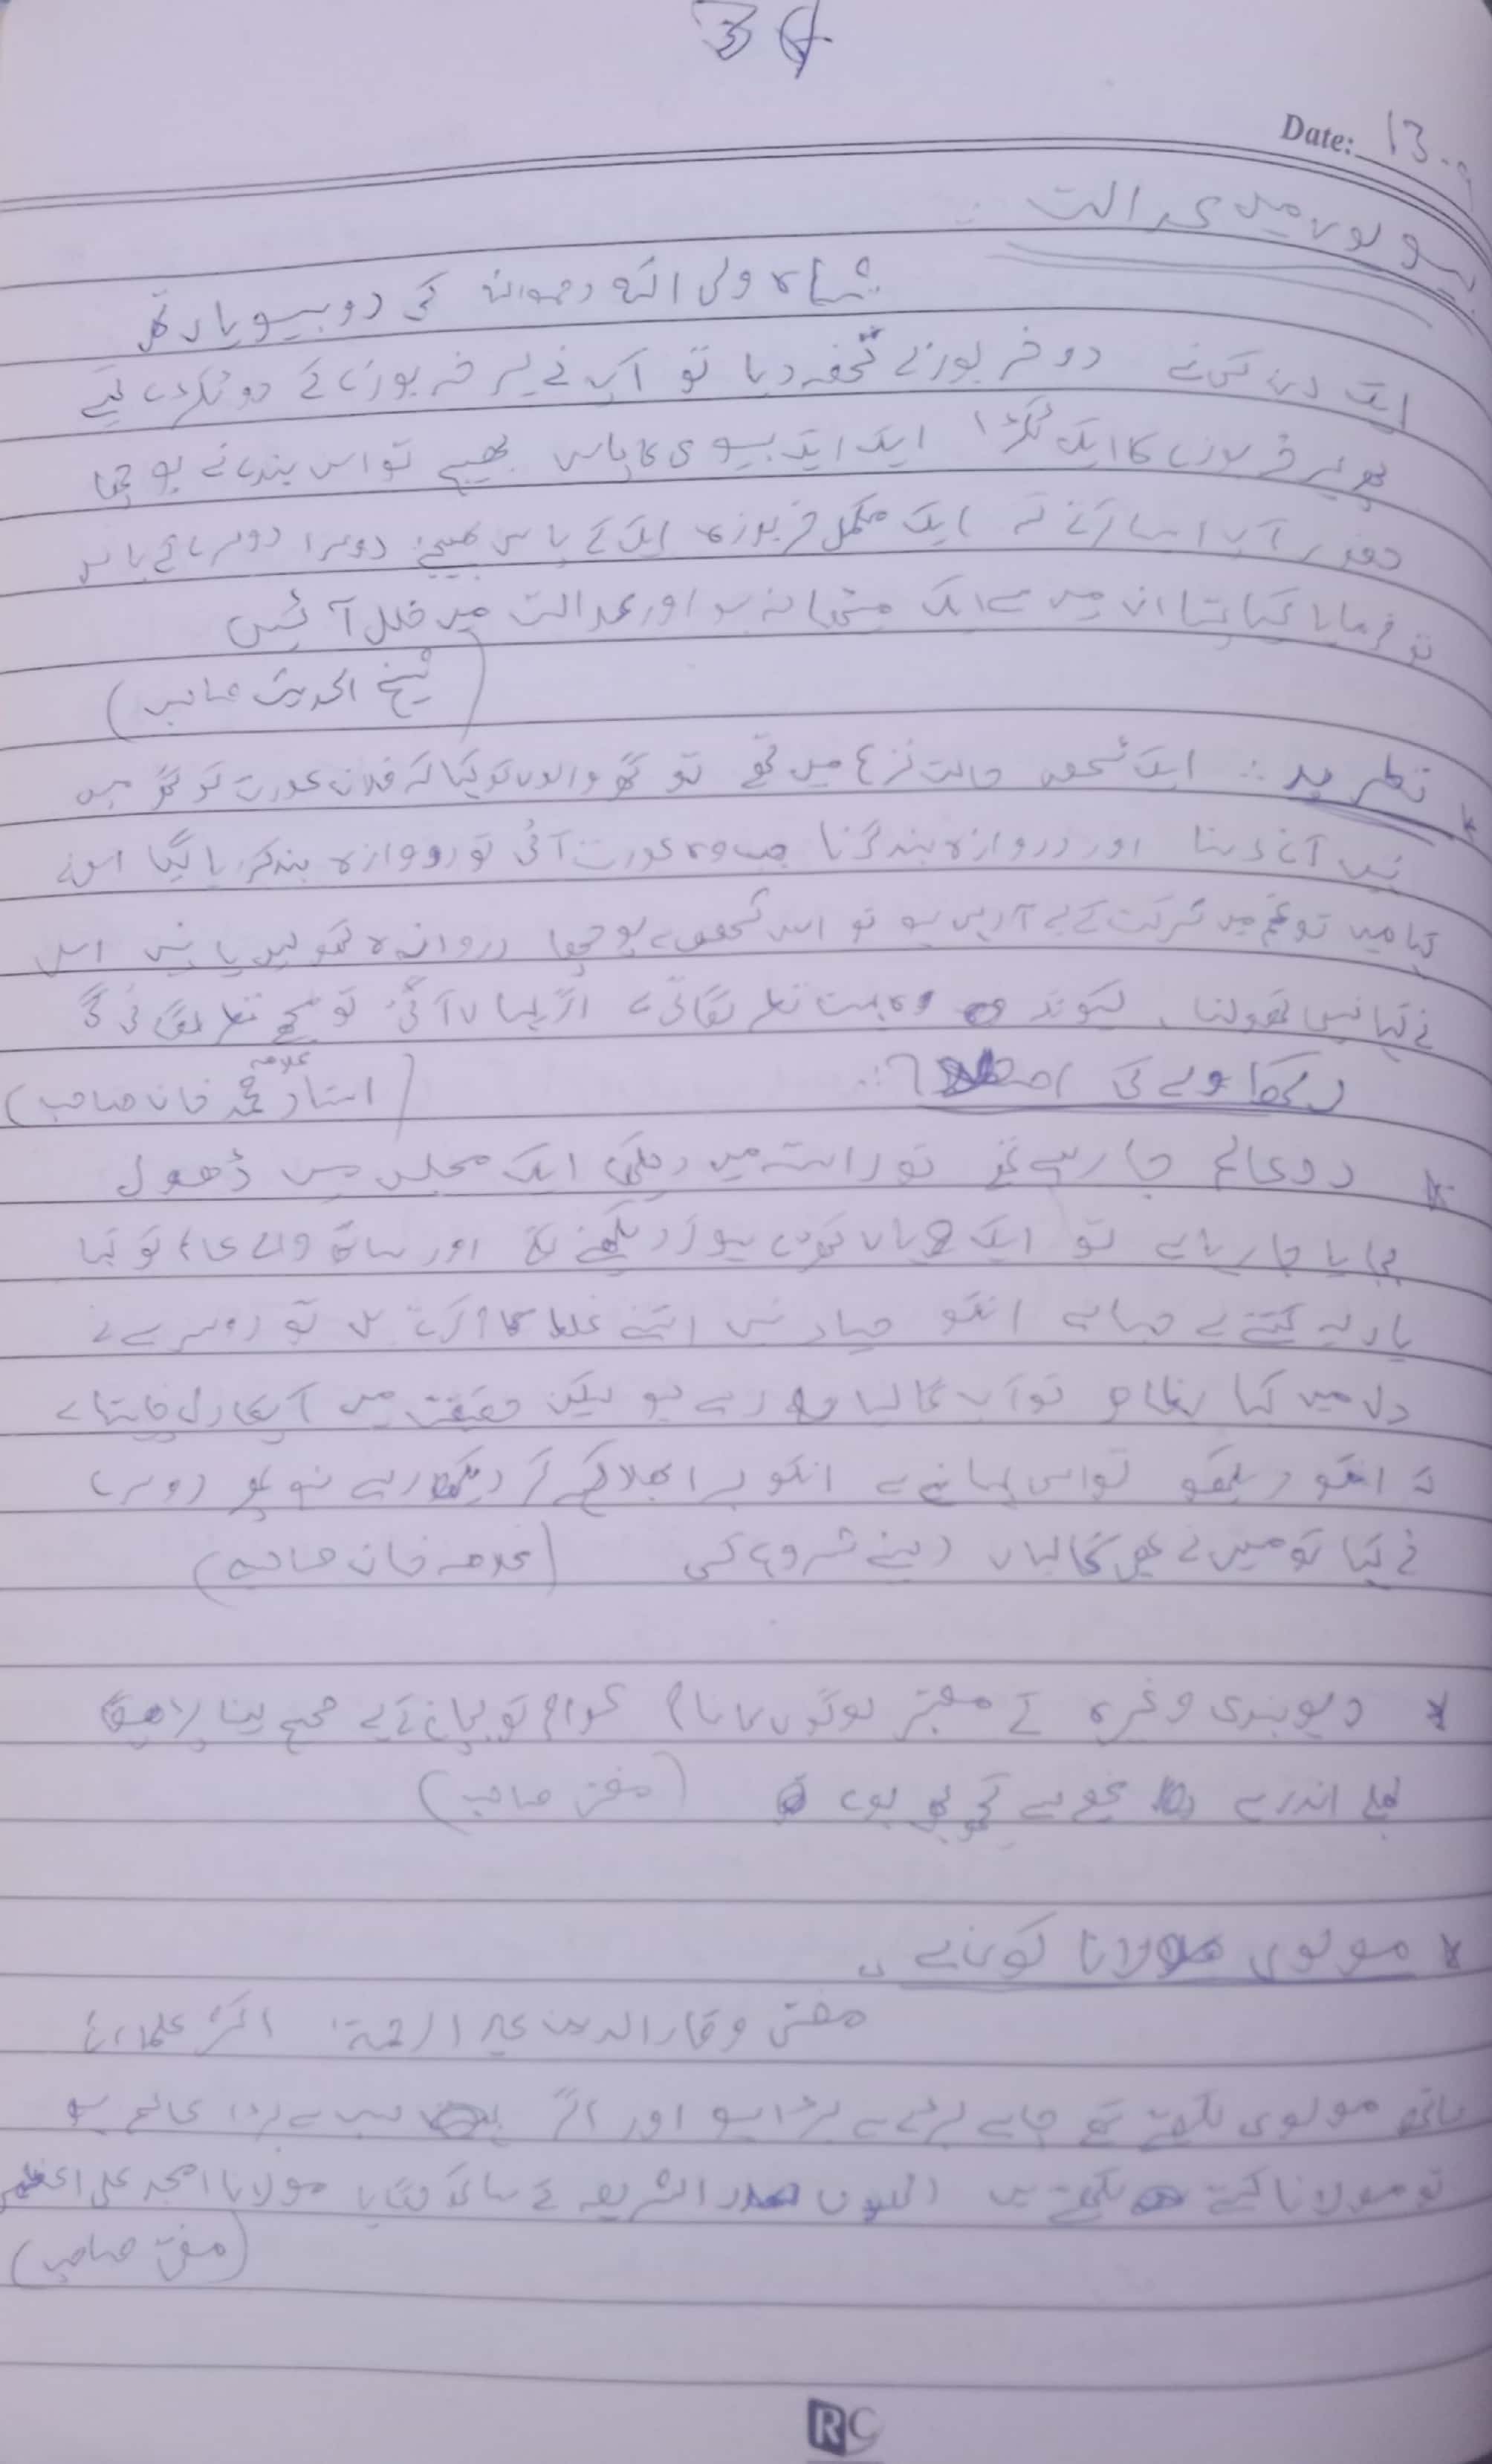 34
Date: 13-9
بیویوں میں عدالت :
شاہ ولی اللہ رحمہ اللہ کی دو بیویاں تھی
ایک دن کسی نے دو خربوزے تحفہ دیا تو آپ نے ہر خربوزے کے دو ٹکڑے کیے
پھر ہر خربوزے کا ایک ٹکڑا ایک ایک بیوی کا پاس بھیجے تو اس بندے نے پوچھا
حضور آپ ایسا کرتے کہ ایک مکمل خربوزہ ایک کے پاس بھیجتے دوسرا دوسرے کے پاس
تو فرمایا کیا پتا ان میں سے ایک میٹھا نہ ہو اور عدالت میں خلل آ ئیں
(شیخ الحدیث صاحب)
* نظر بد :۔ ایک شخص حالت نزع میں تھے تو گھر والوں کو کہا کہ فلاں عورت کو گھر میں
نہیں آنے دینا اور دروازہ بند کرنا جب وہ عورت آئی تو دروازہ بند کر دیا گیا اس نے
کہا میں تو غم میں شرکت کے لیے آ رہی ہو تو اس شخص سے پوچھا دروازہ کھولیں یا نہیں اس
نے کہا نہیں کھولنا ۔ کیونکہ وہ بہت نظر لگاتی ہے اگر یہاں آ گئی تو مجھے نظر لگائے گی
دکھاوے کی :۔
(استاد علامہ محمد خان صاحب)
* دو عالم جا رہے تھے تو راستہ میں دیکھی ایک مجلس میں ڈھول
بجایا جا رہا ہے تو ایک وہاں کھڑے ہو کر دیکھنے لگے اور ساتھ والے عالم کو کہا
یار یہ کتنے بے حیا ہے انکو حیاء نہیں اتنے غلط کام کرتے ہیں تو دوسرے نے
دل میں کہا بظاہر تو آپ گالیاں دے رہے ہو لیکن حقیقت میں آپکا دل چاہتا ہے
کہ انکو دیکھو تو اس بہانے سے انکو برا بھلا کہے کر دیکھ رہے ہو پھر دوسرے
نے کہا تو میں نے بھی گالیاں دینے شروع کی (علامہ خان صاحب)
* دیوبندی وغیرہ کے معتبر لوگوں کا نام عوام کو بچانے کے لیے صحیح لینا پڑھیگا
اندر سے کچھ بھی ہوں (مفتی صاحب)
* مولوی مولانا کون ہے ۔
مفتی وقار الدین علیہ الرحمۃ اکثر علماء کے
ساتھ مولوی لکھتے تھے چاہے بڑے سے بڑا ہو اور اگر سب سے بڑا عالم ہو
تو مولانا کہتے لکھتے ہیں انہوں صدر الشریعہ کے ساتھ لگایا مولانا امجد علی اعظمی
(مفتی صاحب)
RC